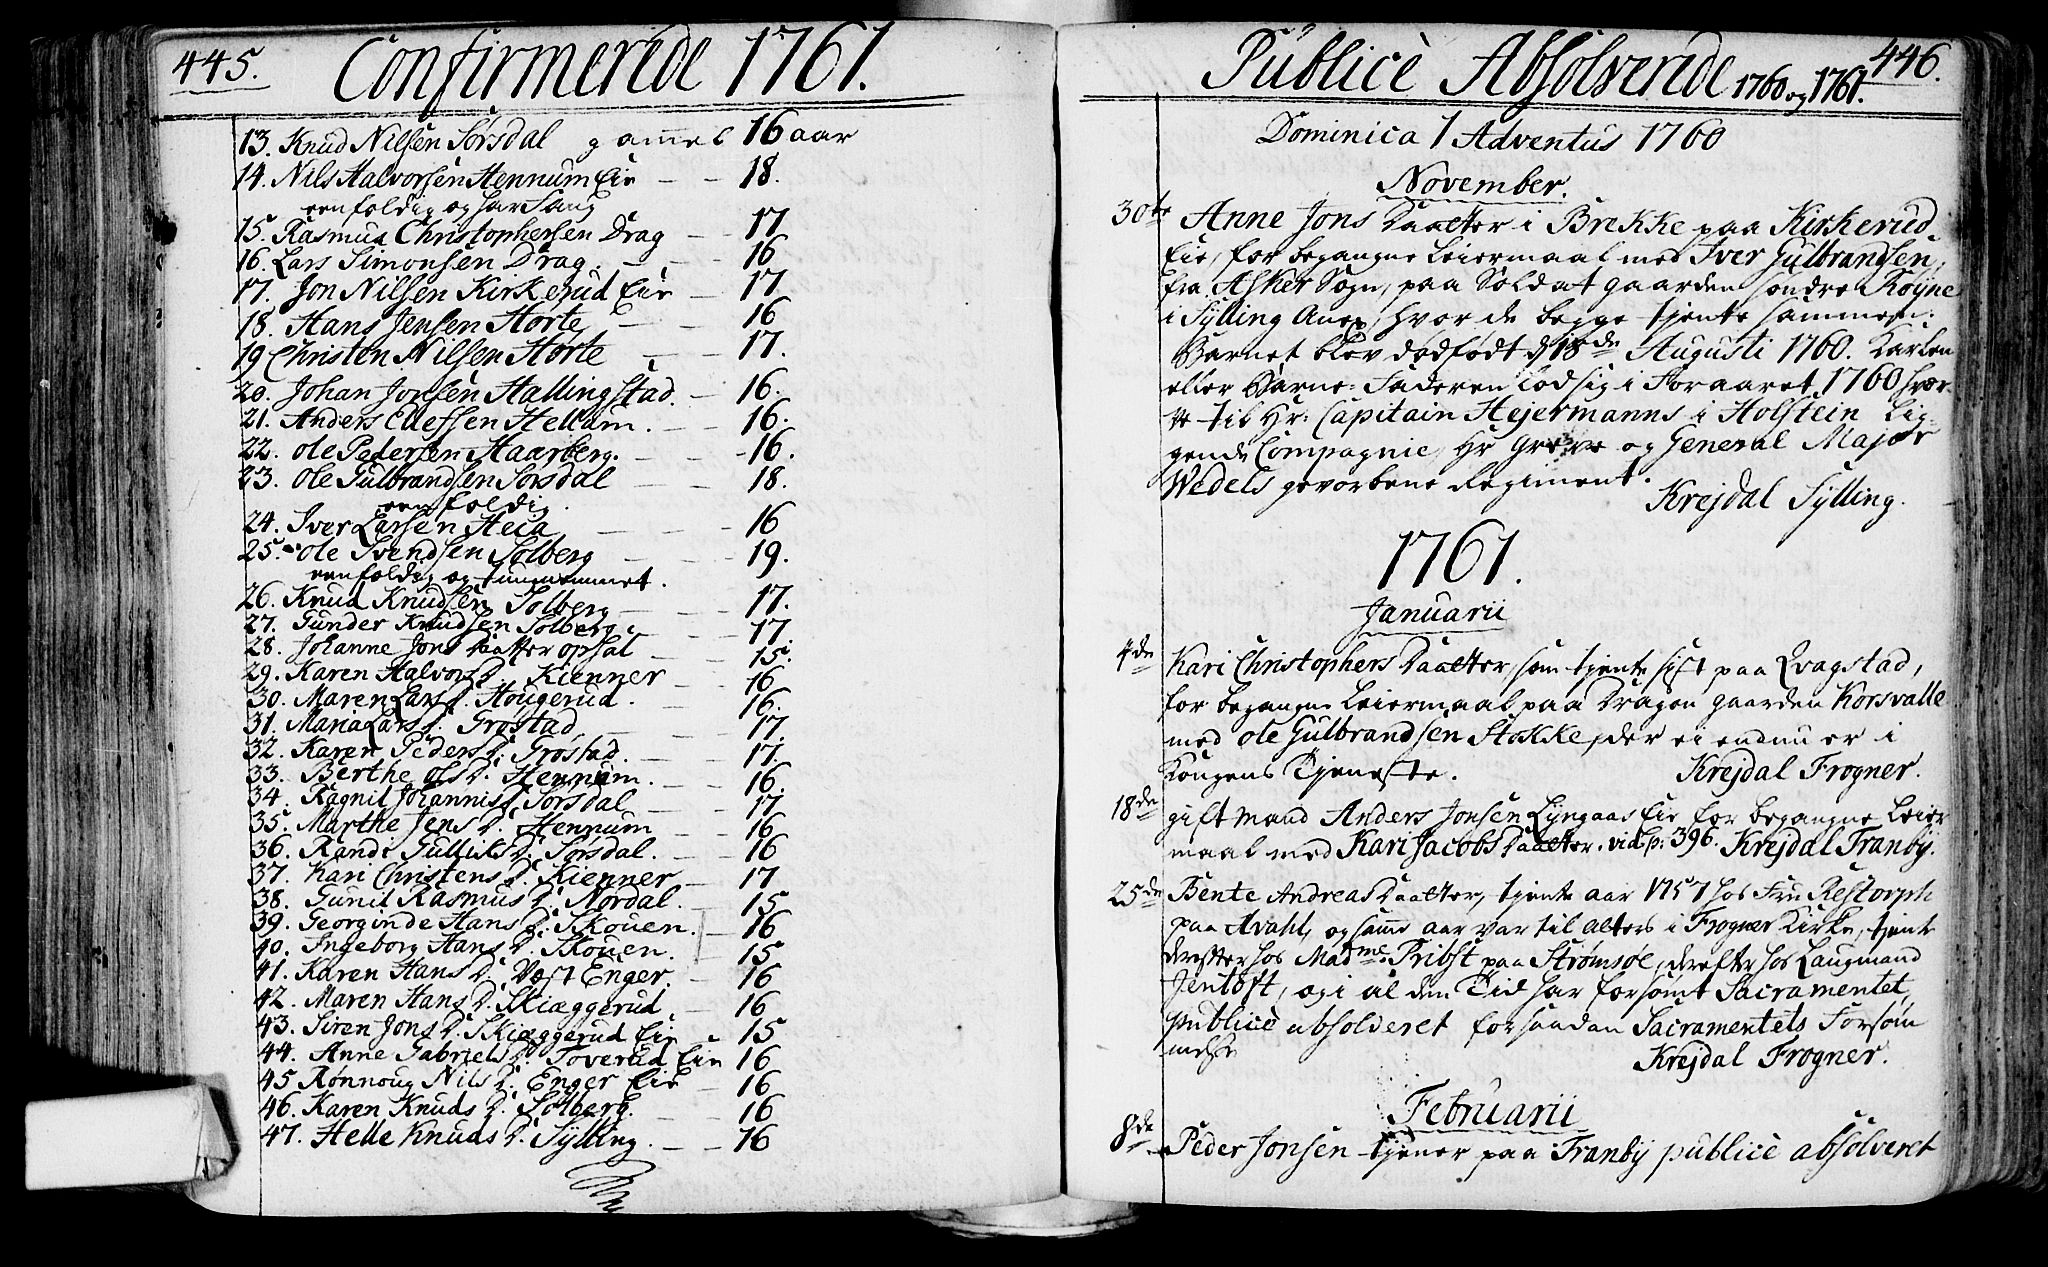 445.
Confirmerede 1761.
13. Knud Nilsen Sørsdal gammel 16 aar
14. Nils Halvorsen Hennum Eie - - 18.
eenfoldig og har Saug
15. Rasmus Christophersen Drag - - 17
16. Lars Simonsen Drag. - - 16
17. Jon Nilsen Kirkerud Eie - 17
18. Hans Jensen Horte - - 16
19 Christen Nilsen Horte - - 17.
20. Johan Jonsen Hallingstad. - 16.
21. Anders Ellefsen Hellum. - - 16.
22. Ole Pedersen Haarberg. - - 16.
23. Ole Gulbrandsen Sørsdal - - 18.
eenfoldig.
24. Iver Larsen Heia - - 16
25. Ole Svendsen Solberg - - 19.
eenfoldig og tungnemmet.
26. Knud Knudsen Solberg - - 17.
27. Gunder Knudsen Solberg. - - 17.
28. Johanne Jons Daatter Opsal - 15.
29. Karen Halvors D. Kienner - 16
30. Maren Lars D. Hougerud. - 16.
31. Maria Lars D. Grøstad - - 17.
32. Karen Peders D. Grøstad. - - 17.
33. Berthe Ols D. Hennum. - - 16.
34. Ragnil Johannis D. Sørsdal - - 17
35. Marthe Jens D. Hennum - - 16
36. Rande Gulliks D. Sørsdal. - - 16
37. Kari Christens D. Kienner - - 17
38. Gunil Rasmus D. Nordal. - - 15
39. Georginde Hans D. Skouen. - 16
40. Ingeborg Hans D. Skouen. - 15
41. Karen Hans D. Vest Enger. - 16
42. Maren Hans D. Skiæggerud. - 16
43. Siren Jons D. Skiæggerud Eie - 15
44. Anne Gabriels D. Toverud Eie 16
45 Rønnoug Nils D. Enger Eie - 16
46. Karen Knuds D. Solberg. - - 16
47. Helle Knuds D. Sylling. - - 16
446.
Publicè Absolverede 1760 og 1761.
Dominica 1 Adventus 1760
November.
30te Anne Jons Daatter i Brekke paa Kirkerud-
Eie, for begangne Leiermaal med Iver Gulbrandsen,
fra Asker Sogn, paa Soldat gaarden søndre Køyne
i Sylling Anex, hvor de begge tjente sammen.
Barnet blev dødfødt d. 18de Augusti 1760. Karlen
eller Barne-Faderen lod sig i Foraaret 1760 hver-
ve til Hr. Capitain Hejermanns i Holstein lig-
gende Compagnie, Hr Greve og General Major
Wedels gevorbene Regiment.
Krejdal Sylling.
1761.
Januarii
4de Kari Christophers Daatter, som tjente sist paa Qvagstad,
for begangne Leiermaal paa Dragon gaarden Korsvalle
med Ole Gulbrandsen Stokke, der ei endnu er i
Kongens Tjeneste. Krejdal Frogner.
18de gift Mand Anders Jonsen Lyngaas Eie for begangne Leier
maal med Kari Jacobs Daatter. vid. p. 396. Krejdal Tranby.
25de Bente Andreas Daatter, tjente aar 1757 hos Fru Restorph
paa Hvahl, og samme aar var til Alters i Frogner Kirke, tjente
derefter hos Madme. Pribst paa Strømsøe, derefter hos Laugmand
Jentoft, og i al den Tid har forsømt Sacramentet,
publicè absolveret for saadan Sacramentets Forsøm
melse Krejdal Frogner.
Februarii
8de Peder Jonsen tjener paa Tranby publicè absolveret